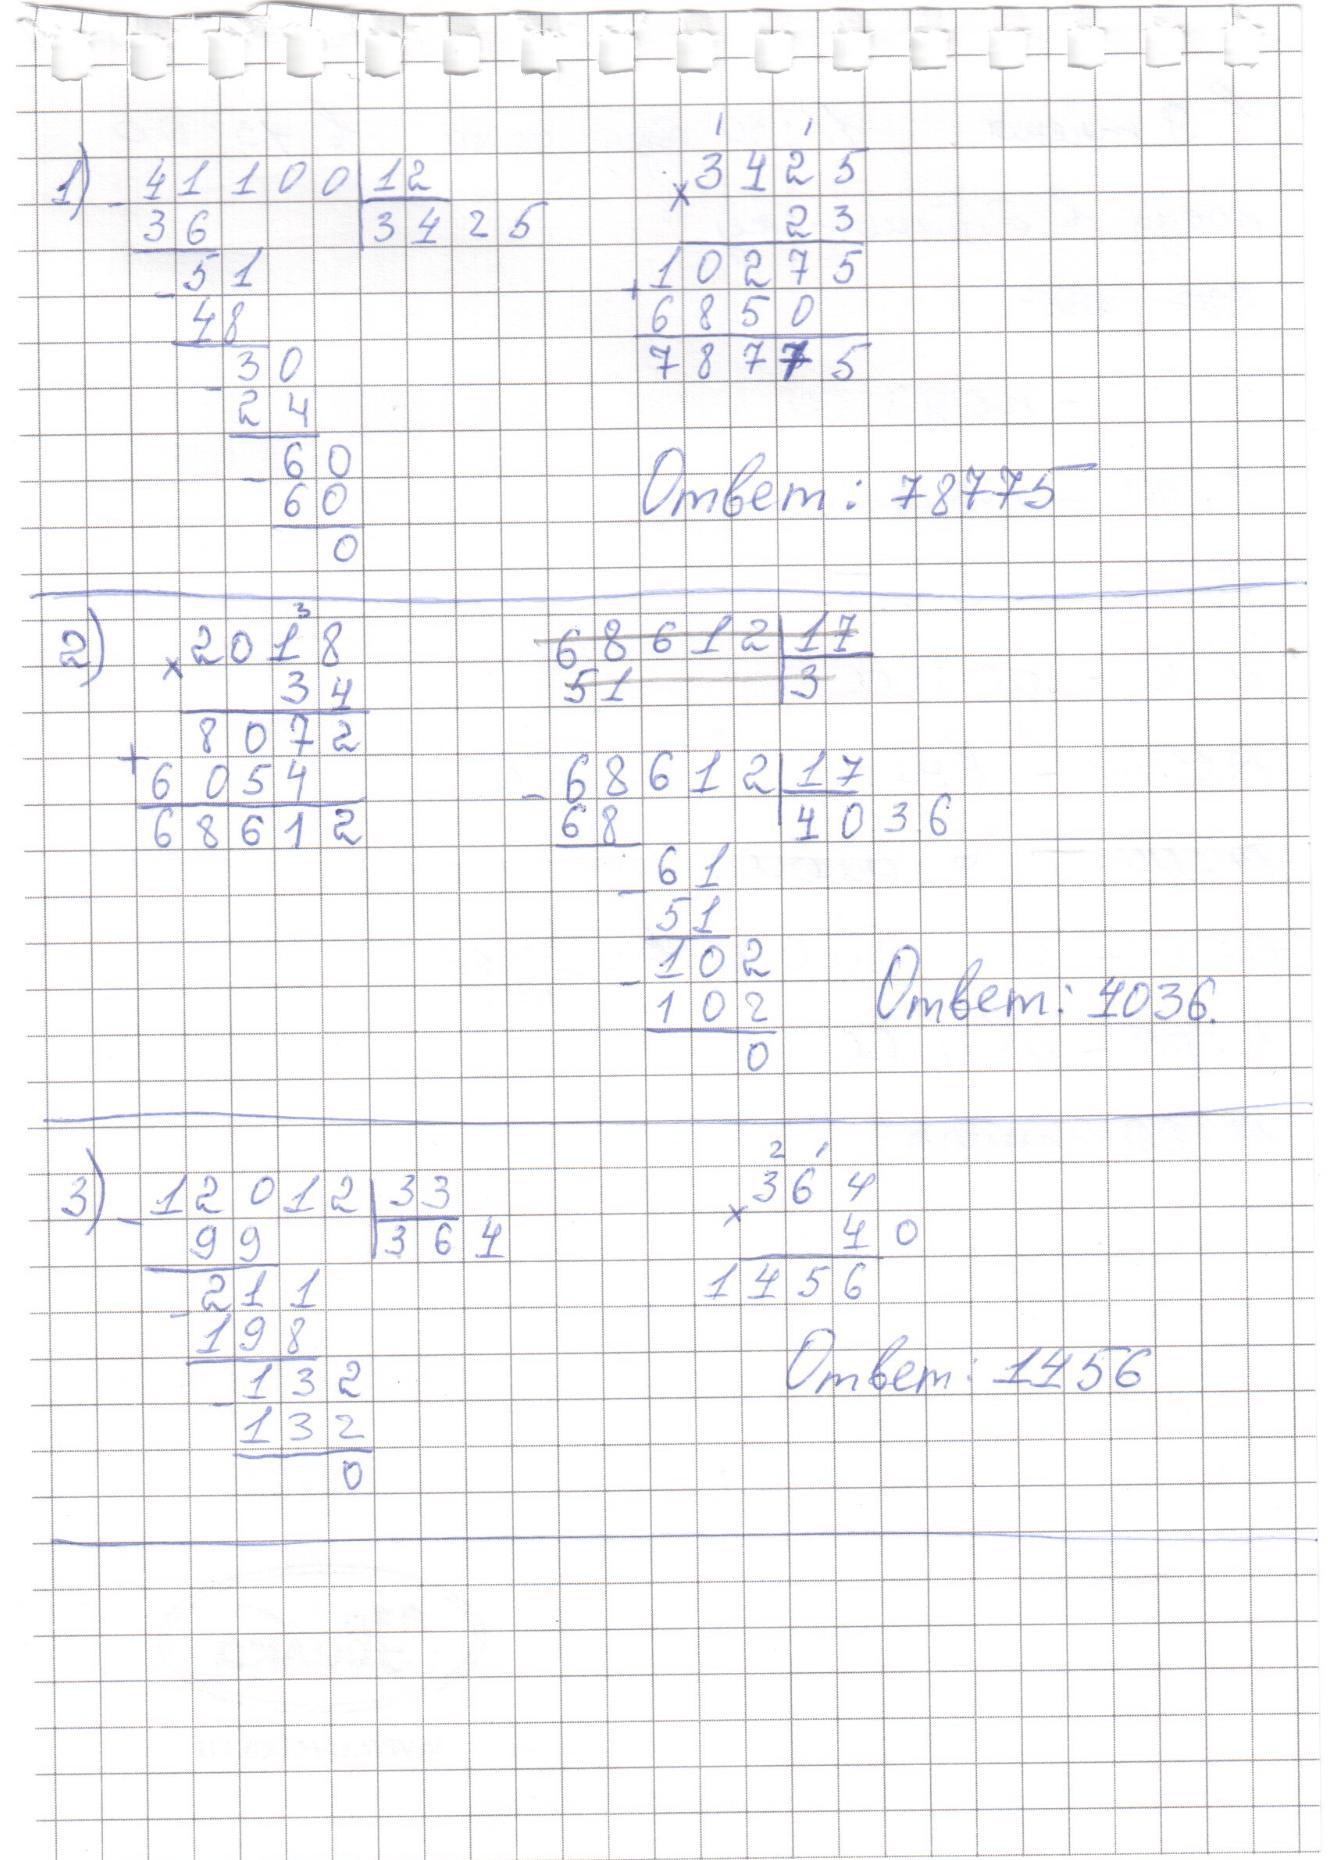 1) - 41100 | 12
36 | 3425
- 51
48
- 30
24
- 60
60
0
1 1
× 3425
23
+ 10275
6850
78775
Ответ: 78775
2) 3
× 2018
34
8072
+ 6054
68612
68612 | 17
51 | 3
- 68612 | 17
68 | 4036
- 61
51
- 102
102
0
Ответ: 4036.
3) - 12012 | 33
99 | 364
- 211
198
- 132
132
0
2 1
× 364
40
1456
Ответ: 1456